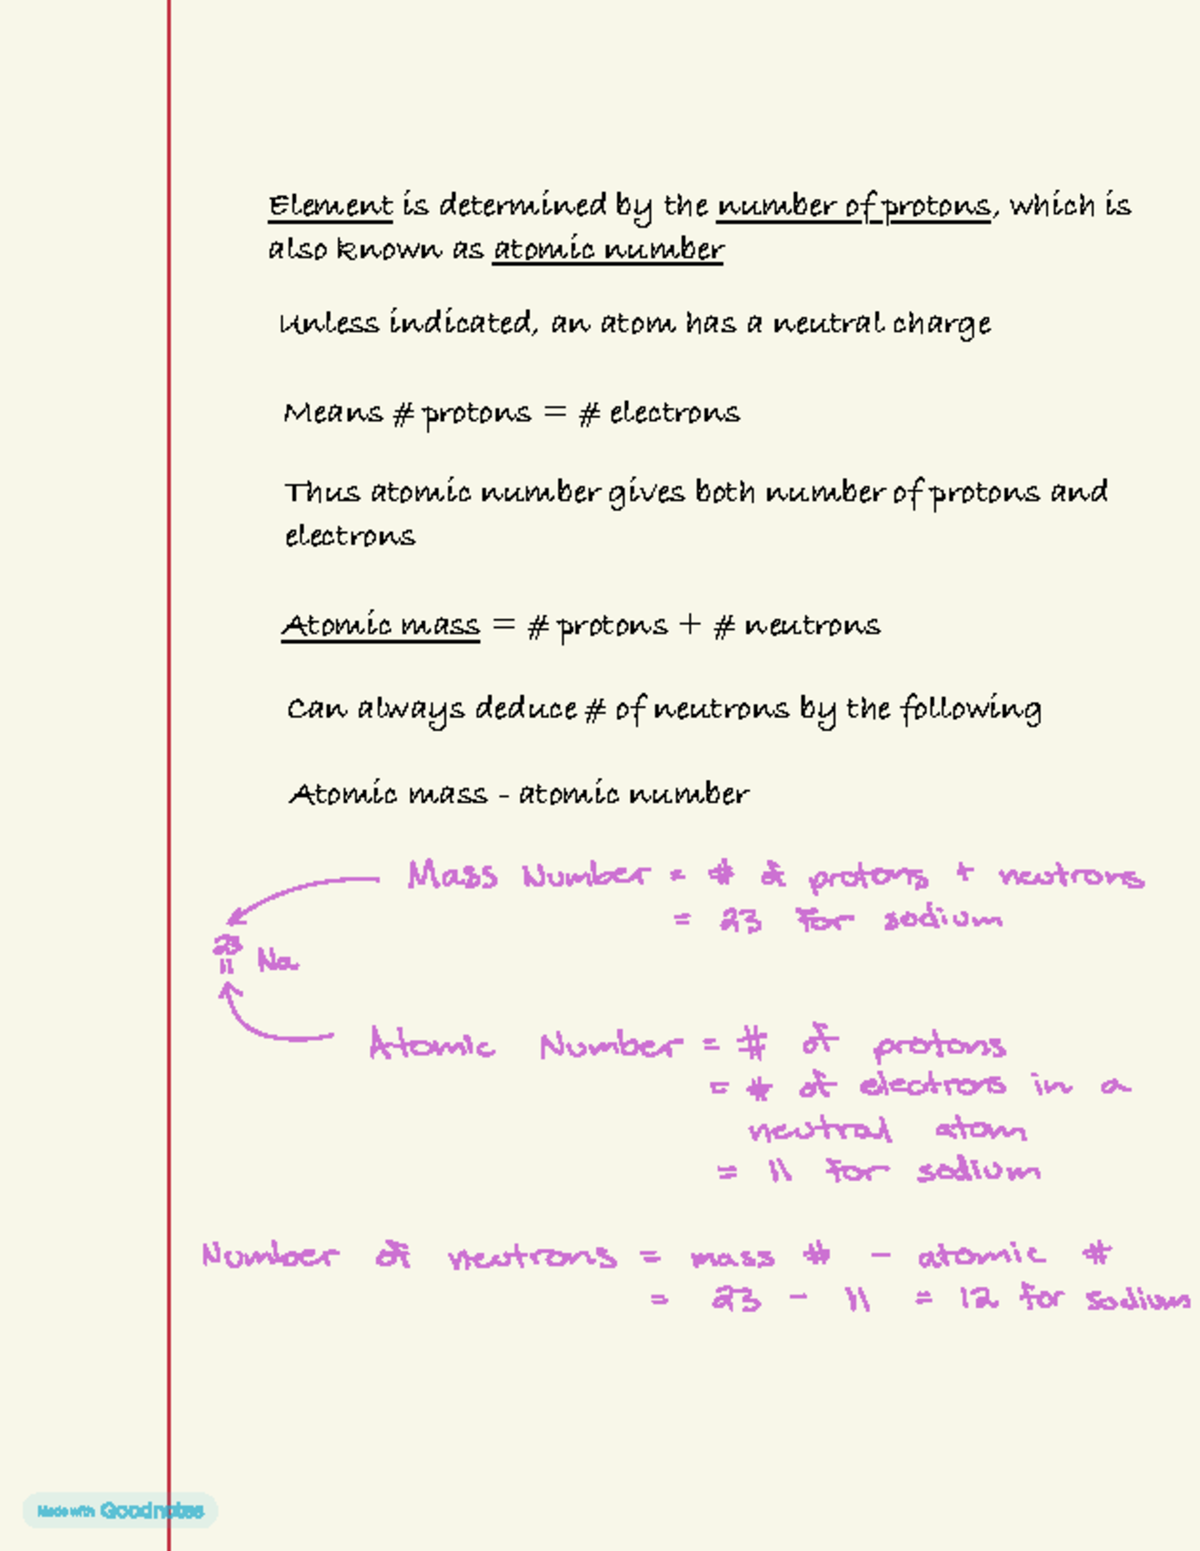 Element is determined by the number of protons, which is
also known as atomic number
Unless indicated, an atom has a neutral charge
Means # protons = # electrons
Thus atomic number gives both number of protons and
electrons
Atomic mass = # protons + # neutrons
Can always deduce # of neutrons by the following
Atomic mass - atomic number
Mass Number = # of protons + neutrons
= 23 for sodium
23
11 Na
Atomic Number = # of protons
= # of electrons in a
neutral atom
= 11 for sodium
Number of neutrons = mass # - atomic #
= 23 - 11 = 12 for sodium
Made with Goodnotes